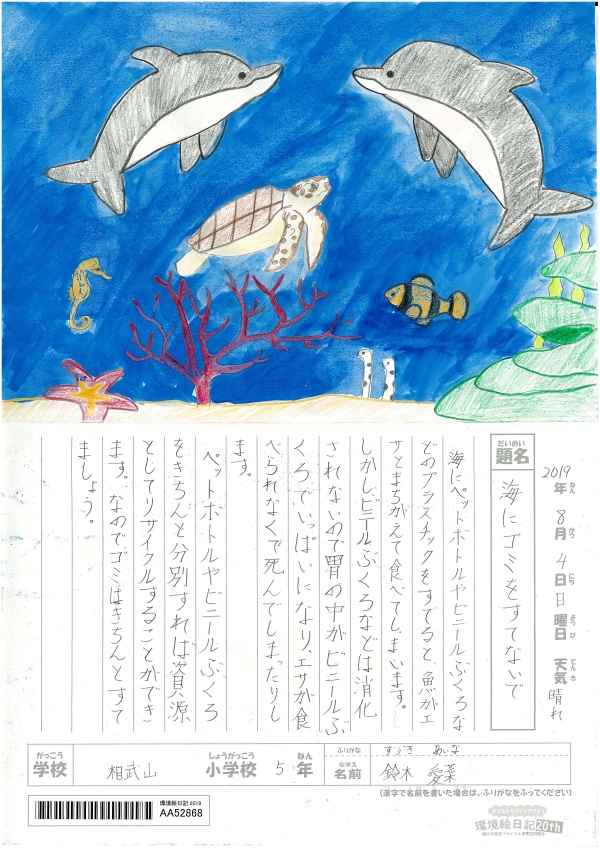 2019年ねん 8月がつ 4日にち 日曜日ようび 天気てんき 晴れ
だいめい
題名
海にゴミをすてないで
海にペットボトルやビニールぶくろな
どのプラスチックをすてると、魚がエ
サとまちがえて食べてしまいます。
しかし、ビニールぶくろなどは消化
されないので胃の中がビニールぶ
くろでいっぱいになり、エサが食
べられなくて死んでしまったりし
ます。
ペットボトルやビニールぶくろ
をきちんと分別すれば資源
としてリサイクルすることができ
ます。なのでゴミはきちんとすて
ましょう。
がっこう
学校
相武山
しょうがっこう
小学校
5
ねん
年
ふりがな
すずき あいな
なまえ
名前
鈴木 愛菜
(漢字で名前を書いた場合は、ふりがなをふってください)
環境絵日記 2019
AA52868
環境絵日記 20th